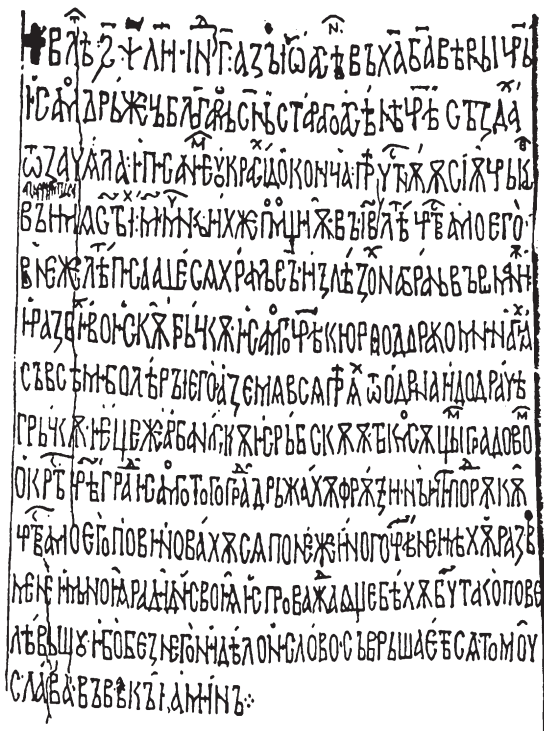 ✝ влѣⷮ ҂ѕ҃ ѱ҃ л҃ и҃ · іⷩ҇ г҃ азъ іѡ҃ асѣⷩ въ х҃а б҃а вѣрьı цр҃ь
и самⷪдрьжечь блъгаромь с҃нь стараго асѣнѣ цр҃ѣ създаⷯ
ѿ зачѧла и писанⷨе украсиⷯ до конча прⷱутѫѫ сіѫ чрькⷡ
въ имѧ ст҃ыⷯ м҃ мⷱнкъ ихже помощиѫ въ в҃і лѣⷮ цр҃ва моего
в неже лѣⷮ писааше сѧ храмь съ излѣзоⷯ на брань въ романиѫ
и разбиⷯ воискѫ грьчкѫ и самⷪго цр҃ѣ кюр ѳодра комнина ѧⷯ
съ всѣми болѣры его а земѧ всѧ прⷷѧⷯ ѿ одрина и до драчѣ
грьчкѫ и еще же арбанаскѫ и срьбскѫѫ тъкмⷪ сѫщыⷨ градовоⷨ
окрⷭ҇ть цр҃ѣграⷣ и самⷪго того граⷣ дрьжахѫ фрѫзи нъ и ти поⷣ рѫкѫ
цр҃тва моего повиновахѫ сѧ понеже иного цр҃ѣ не имѣхѫ разв
мене и мноѧ ради дни своѧ испроважⷣаащее бѣхѫ б҃у тако пове
лѣвьшу ибо без него ни дѣло ни слово съврьшаетъ сѧ томоу
слава въ вѣкы аминъ